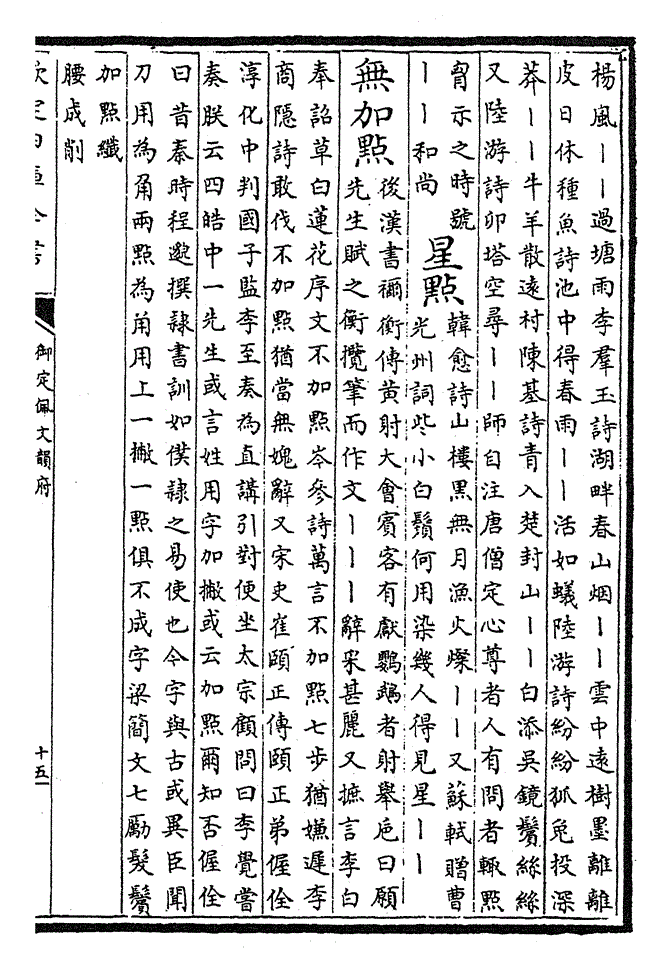 楊風丨丨過塘雨李羣玉詩湖畔春山烟丨丨雲中遠樹墨離離
皮日休種魚詩池中得春雨丨丨活如蟻陸游詩紛紛狐兔投深
莽丨丨牛羊散遠村陳基詩青入楚封山丨丨白添吳鏡鬢絲絲
又陸游詩卯塔空尋丨丨師自注唐僧定心尊者人有問者輙點
胷示之時號
丨丨和尚
星點
韓愈詩山樓黑無月漁火燦丨丨又蘇軾贈曹
光州詞些小白鬚何用染幾人得見星丨丨
無加點
後漢書禰衡傳黃射大會賓客有獻鸚鵡者射舉巵曰願
先生賦之衡攬筆而作文丨丨丨辭采甚麗又摭言李白
奉詔草白蓮花序文不加點岑參詩萬言不加點七步猶嫌遲李
商隱詩敢伐不加點猶當無媿辭又宋史崔頤正傳頤正弟偓佺
淳化中判國子監李至奏為直講引對便坐太宗顧問曰李覺嘗
奏朕云四皓中一先生或言姓用字加撇或云加點爾知否偓佺
曰昔秦時程邈撰隸書訓如僕隸之易使也今字與古或異臣聞
刀用為角兩點為甪用上一撇一點俱不成字梁簡文七勵髮鬢
加點纖
腰成削
欽定四庫全書
御定佩文韻府
十五